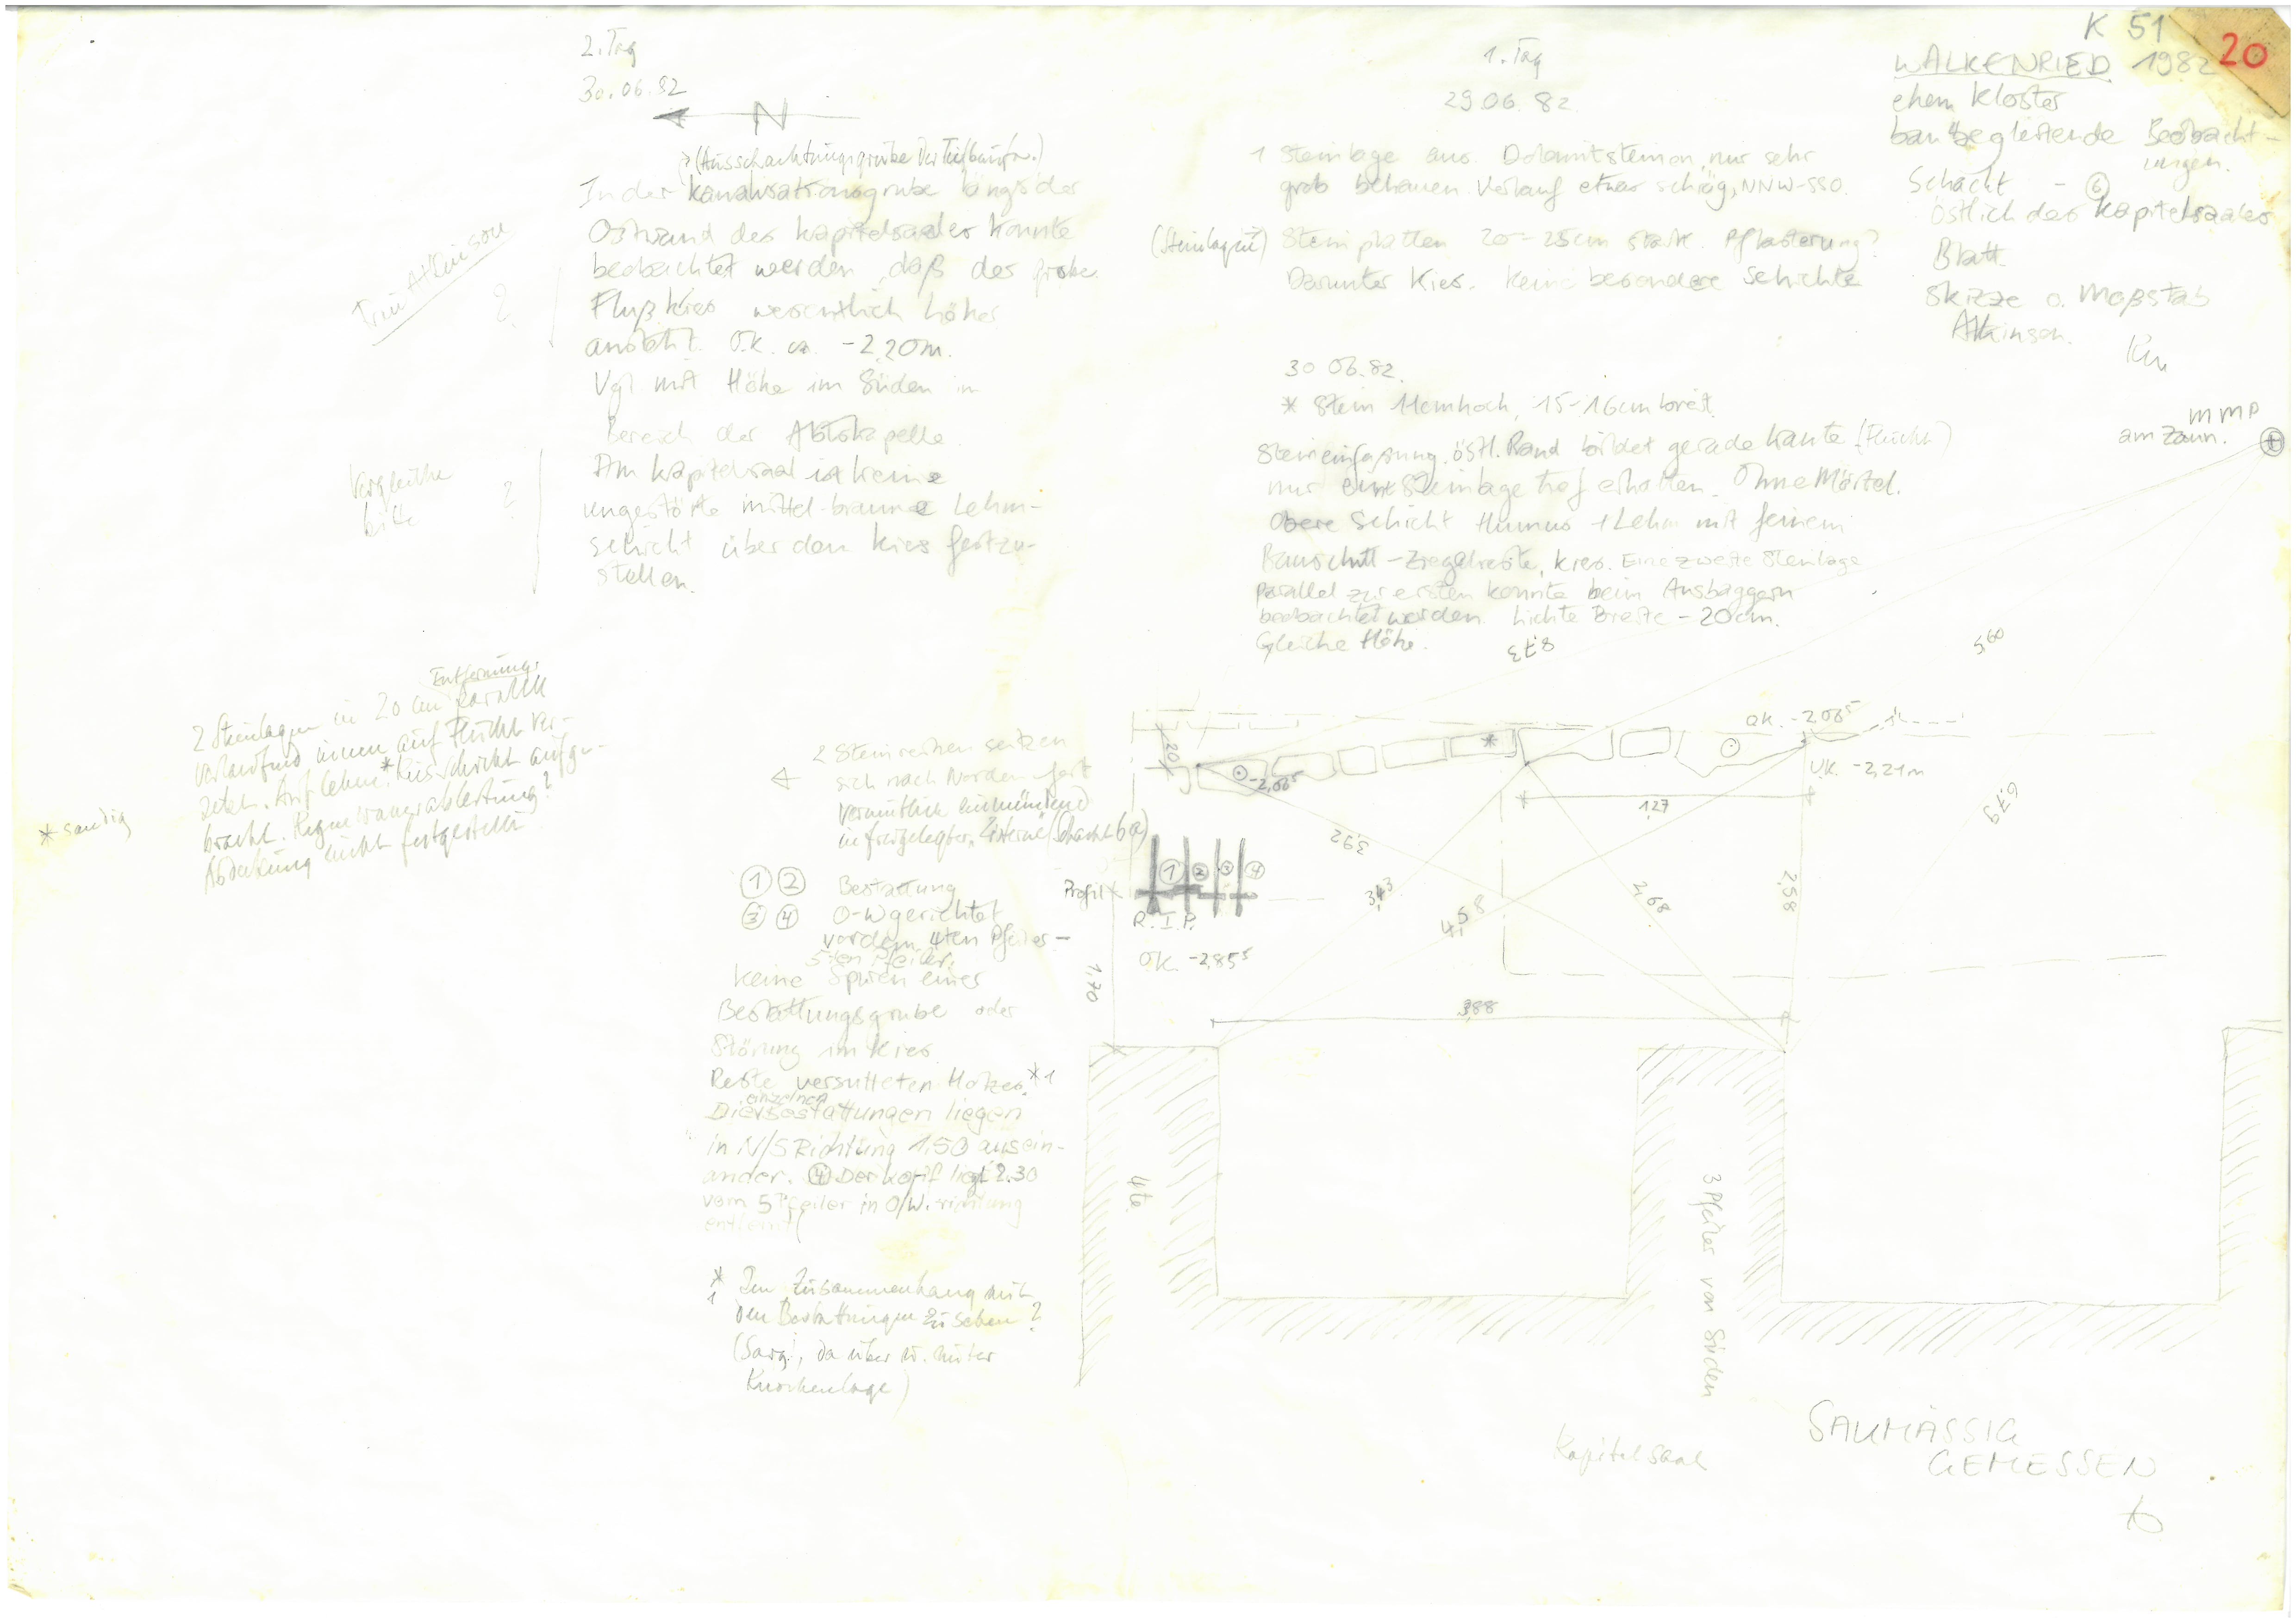 K 51
20
WALKENRIED 1982
ehem Kloster
baubegleitende Beobacht-
ungen.
Schacht - 6
östlich des Kapitelsaales
Blatt
Skizze o. Maßstab
Atkinson.
2. Tag
30.06.82
N
(Ausschachtungsgrube der Tiefbaufa.)
In der Kanalisationsgrube längs der
Ostwand des Kapitelsaales konnte
beobachtet werden, daß der grobe
Flußkies wesentlich höher
ansteht. O.K. ca. -2,20m.
Vgl mit Höhe im Süden im
Bereich der Abtskapelle.
Am Kapitelsaal ist keine
ungestörte mittel-braune Lehm-
schicht über dem Kies festzu-
stellen.
Tim Atkinson
?
Vergleiche
bitte
?
1. Tag
29.06.82.
1 Steinlage aus Dolomitsteinen, nur sehr
grob behauen. Verlauf etwas schräg, NNW-SSO.
Steinplatten 20-25cm stark. Pflasterung?
Darunter Kies. Keine besondere Schichte
30 06.82.
* Stein 11cm hoch, 15-16cm breit.
Steineinfassung. östl. Rand bildet gerade Kante (Flucht)
nur eine Steinlage tief erhalten. Ohne Mörtel.
Obere Schicht Humus + Lehm mit feinem
Bauschutt - Ziegelreste, Kies. Eine zweite Steinlage
parallel zur ersten konnte beim Ausbaggern
beobachtet werden. Lichte Breite - 20cm.
Gleiche Höhe.
MMP
am Zaun.
8,73
5,60
6,79
2 Steinlagen in 20 cm Entfernung parallel
verlaufend innen auf Flucht ver-
setzt. Auf lehm.* Kiesschicht aufge-
bracht. Regenwasserableitung?
Abdeckung nicht festgestellt
* sandig
2 Steinreihen setzen
sich nach Norden fort
vermutlich einmündend
in freigelegter "Zisterne" (Schacht 6a)
1 2 Bestattung
3 4 O-W gerichtet
vor dem 4ten Pfeiler -
5ten Pfeiler.
Keine Spuren einer
Bestattungsgrube oder
Störung im Kies.
Reste versutteten Holzes. *1
Die einzelnen Bestattungen liegen
in N/S Richtung 1,50 ausein-
ander. 4 Der Kopf liegt 2.30
vom 5 Pfeiler in O/W. richtung
entfernt
*1 Im Zusammenhang mit
den Bestattungen zu sehen?
(Sarg!, da über u. unter
Knochenlage)
20
-2,06⁵
*
OK. -2,06⁵
UK. -2,21m
1,27
3,92
3,43
4,58
2,68
2,58
Profil
1 2 3 4
R.I.P.
OK. -2,85⁵
1,70
3,88
4te
3 Pfeiler von Süden
Kapitelsaal
SAUMÄSSIG
GEMESSEN